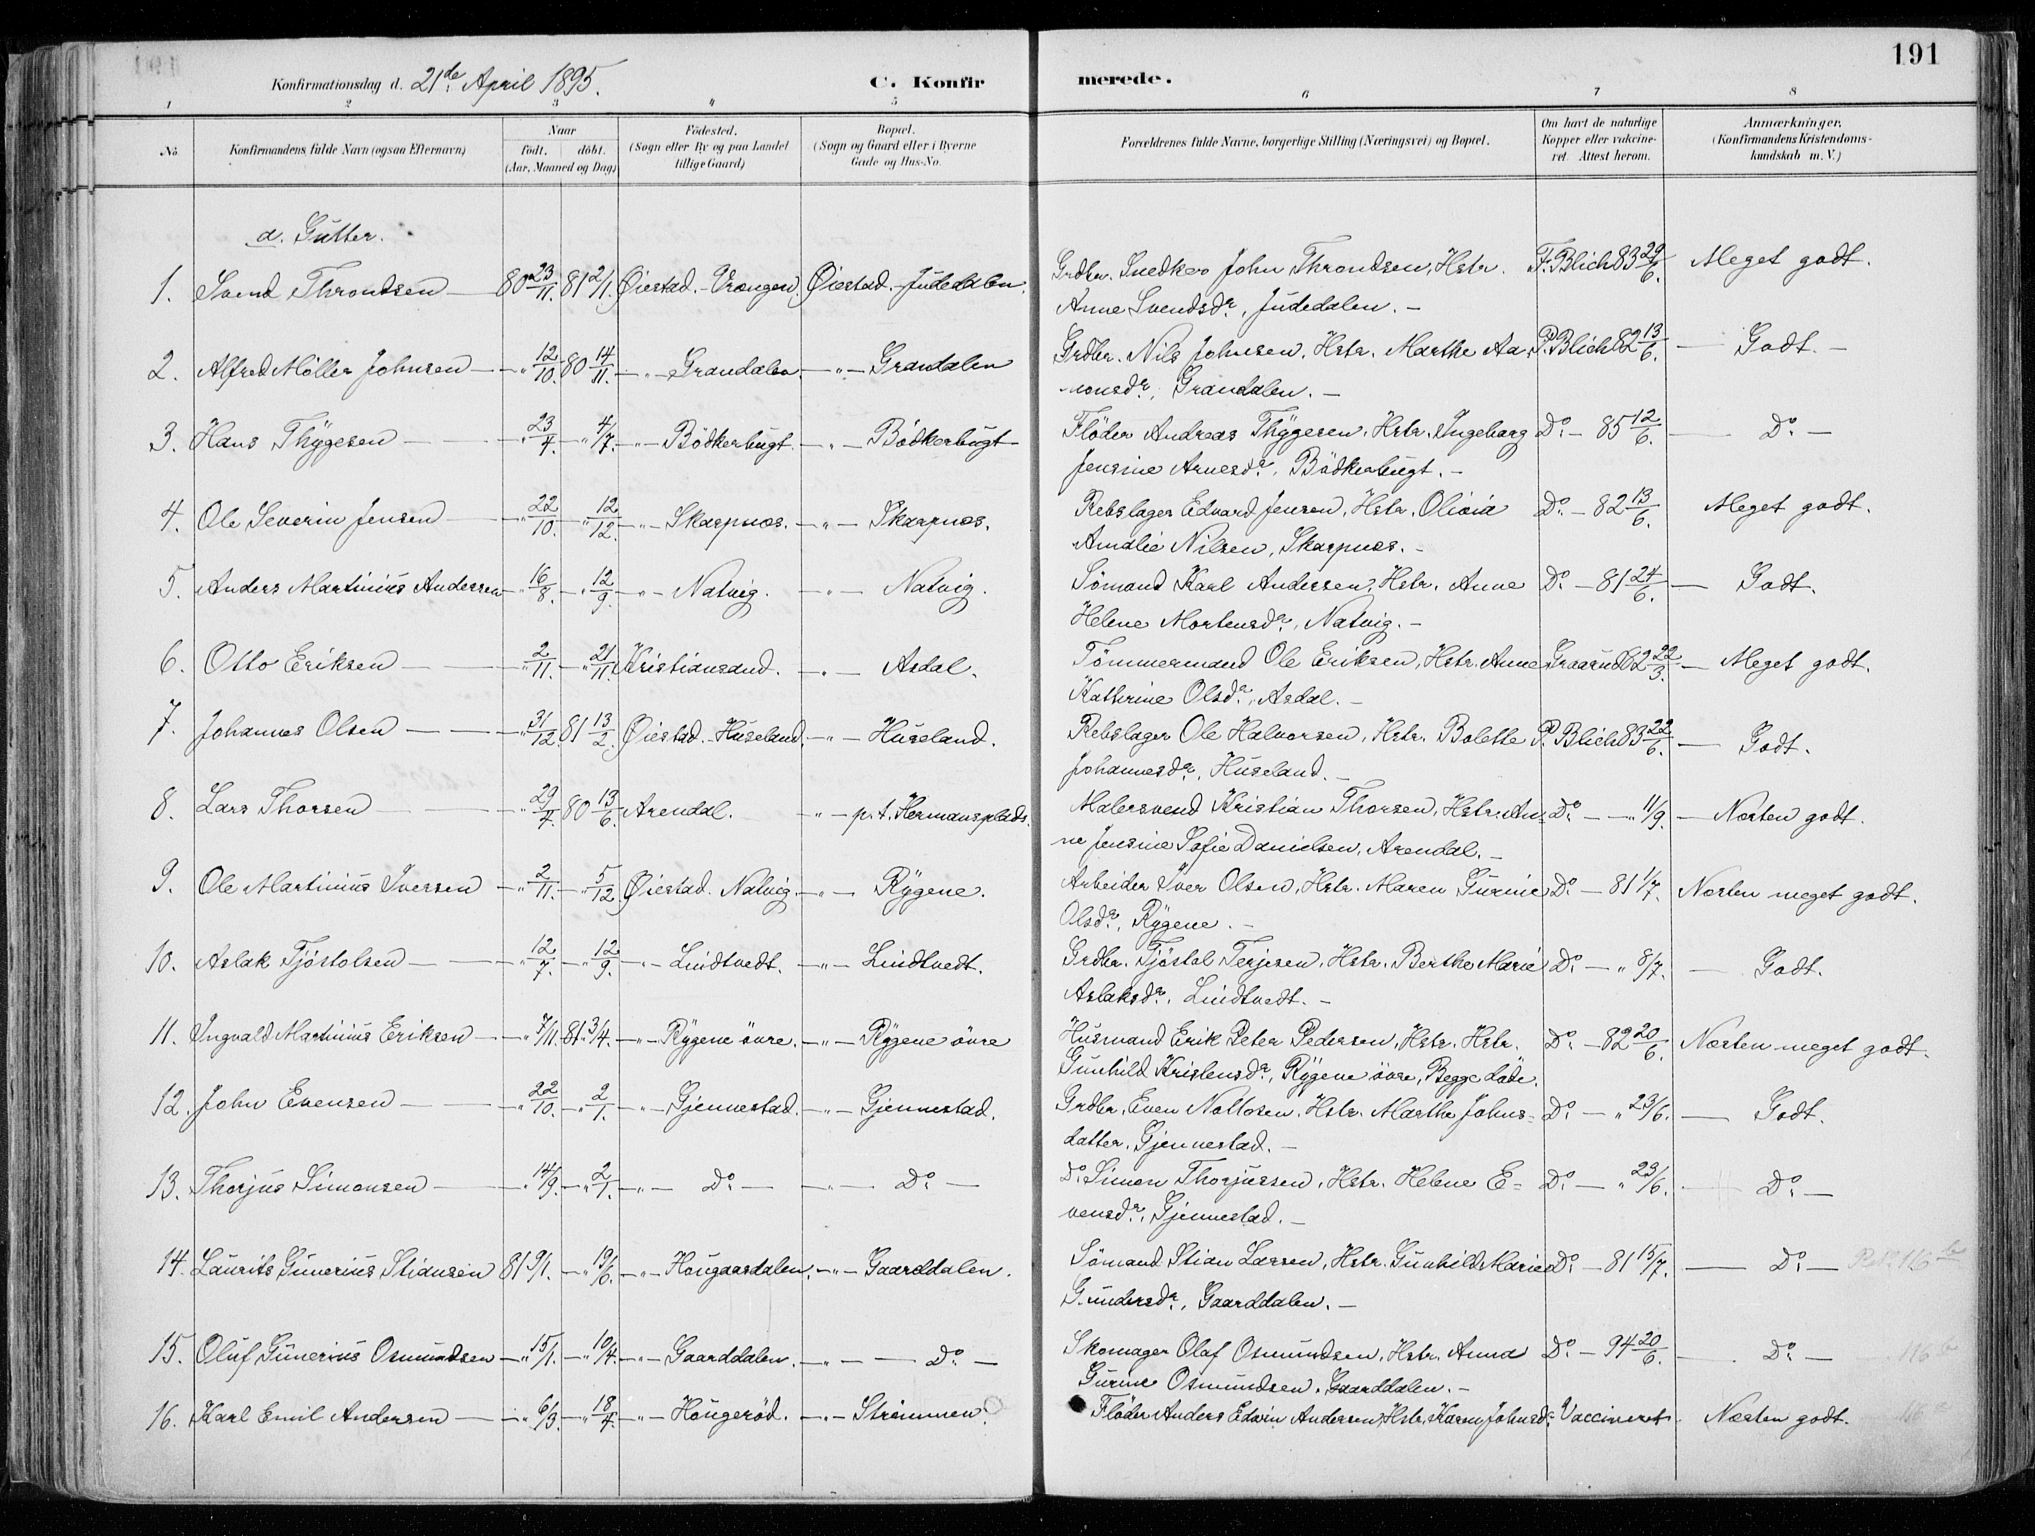 191
Konfirmationsdag d. 21de April 1895.
C. Konfirmerede.
1 2 3 4 5 6 7 8
No.
Konfirmandens fulde Navn (ogsaa Efternavn)
Naar
födt. döbt.
(Aar, Maaned og Dag)
Födested.
(Sogn eller By og paa Landet
tillige Gaard)
Bopæl.
(Sogn og Gaard eller i Byerne
Gade og Hus-No.
Forældrenes fulde Navne, borgerlige Stilling (Næringsvei) og Bopæl.
Om havt de naturlige
Kopper eller vakcine-
ret. Attest herom.
Anmærkninger,
(Konfirmandens Kristendoms-
kundskab m. V.)
a. Gutter.
1. Svend Throndsen — 80 23/11. 81 2/1. Øiestad.-Vrængen. Øiestad.-Judedalen. Grdbr. Snedker John Throndsen, Hstr. F. Blich 83 29/6. Meget godt.
Anne Svendsdr., Judedalen. —
2. Alfred Møller Johnsen — " 12/10. 80 14/11. — " — Grandalen. — " — Grandalen Grdbr. Nils Johnsen, Hstr. Marthe Aa- P. Blich 82 13/6. — Godt. —
nonsdr., Grandalen. —
3. Hans Thygesen — " 23/4. — " 4/7. — " — Bödkerbugt. — " — Bödkerbugt Flöder Andreas Thygesen, Hstr. Ingeborg Do. — 85 12/6. — Do. —
Jensine Arnesdr., Bödkerbugt. —
4. Ole Severin Jensen — " 22/10. — " 12/12. — " — Skarpnæs. — " — Skarpnæs. Rebslager Edvard Jensen, Hstr. Olivia Do. — 82 13/6. Meget godt.
Amalie Nilsen, Skarpnæs. —
5. Anders Martinius Andersen — " 16/8. — " 12/9. — " — Natvig. — " — Natvig. Sömand Karl Andersen, Hstr. Anne Do. — 81 24/6. — Godt.
Helene Mortensdr., Natvig. —
6. Otto Eriksen — " 2/11. — " 21/11. Kristiansand. — " — Asdal. Tömmermand Ole Eriksen, Hstr. Anne 82 22/3. — Meget godt.
Kathrine Olsdr., Asdal. —
7. Johannes Olsen — " 31/12. 81 13/2. Øiestad.-Huseland. — " — Huseland. Rebslager Ole Halvorsen, Hstr. Bolette P. Blich 83 22/6. — Godt.
Johannesdr., Huseland. —
8. Lars Thorsen — " 29/4. 80 13/6. Arendal. — " — p.t. Hermansplads. Malersvend Kristian Thorsen, Hstr. An- Do. — " 11/9. — Næsten godt.
ne Jensine Sofie Danielsen, Arendal. —
9. Ole Martinius Iversen — " 2/11. — " 5/12. Øiestad. Natvig. — " — Rygene. Arbeider Iver Olsen, Hstr. Maren Gurine Do. — 81 1/7. Næsten meget godt.
Olsdr., Rygene. —
10. Aslak Tjöstolsen — " 12/7. — " 12/9. — " — Lindtvedt. — " — Lindtvedt. Grdbr. Tjöstol Terjesen, Hstr. Berthe Marie Do. — " 8/7. — Godt.
Aslaksdr., Lindtvedt. —
11. Ingvald Martinius Eriksen — " 7/11. 81 3/4. — " — Rygene övre. — " — Rygene övre Husmand Erik Peter Pedersen, Hstr. Hstr. Do. — 82 20/6. Næsten meget godt.
Gunhild Kristensdr., Rygene övre, Begge döde.
12. John Evensen — " 22/10. — " 2/1. — " — Gjennestad. — " — Gjennestad. Grdbr. Even Nottosen, Hstr. Marthe Johns- Do. — " 23/6. — Godt.
datter, Gjennestad. —
13. Thorjus Simonsen — " 14/9. — " 2/1. — " — Do. — — " — Do. — Do. Simon Thorjussen, Hstr. Helene E- Do. — " 23/6. — Do. —
vensdr., Gjennestad. —
14. Laurits Gunerius Stiansen 81 9/1. — " 19/6. — " — Hougaardalen. — " — Gaarddalen. Sömand Stian Larsen, Hstr. Gunhild Marie Do. — 81 15/7. — Do. —
Gundersdr., Gaarddalen. —
15. Oluf Gunerius Osmundsen — " 15/1. — " 10/4. — " — Gaarddalen. — " — Do. — Skomager Olaf Osmundsen, Hstr. Anna Do. — 94 20/6. — Do. —
Gurine Osmundsen, Gaarddalen. —
16. Karl Emil Andersen — " 6/3. — " 18/4. — " — Hougeröd. — " — Strömmen. Flöder Anders Edvin Andersen, Hstr. Karen Johnsdr. Vaccineret. Næsten godt.